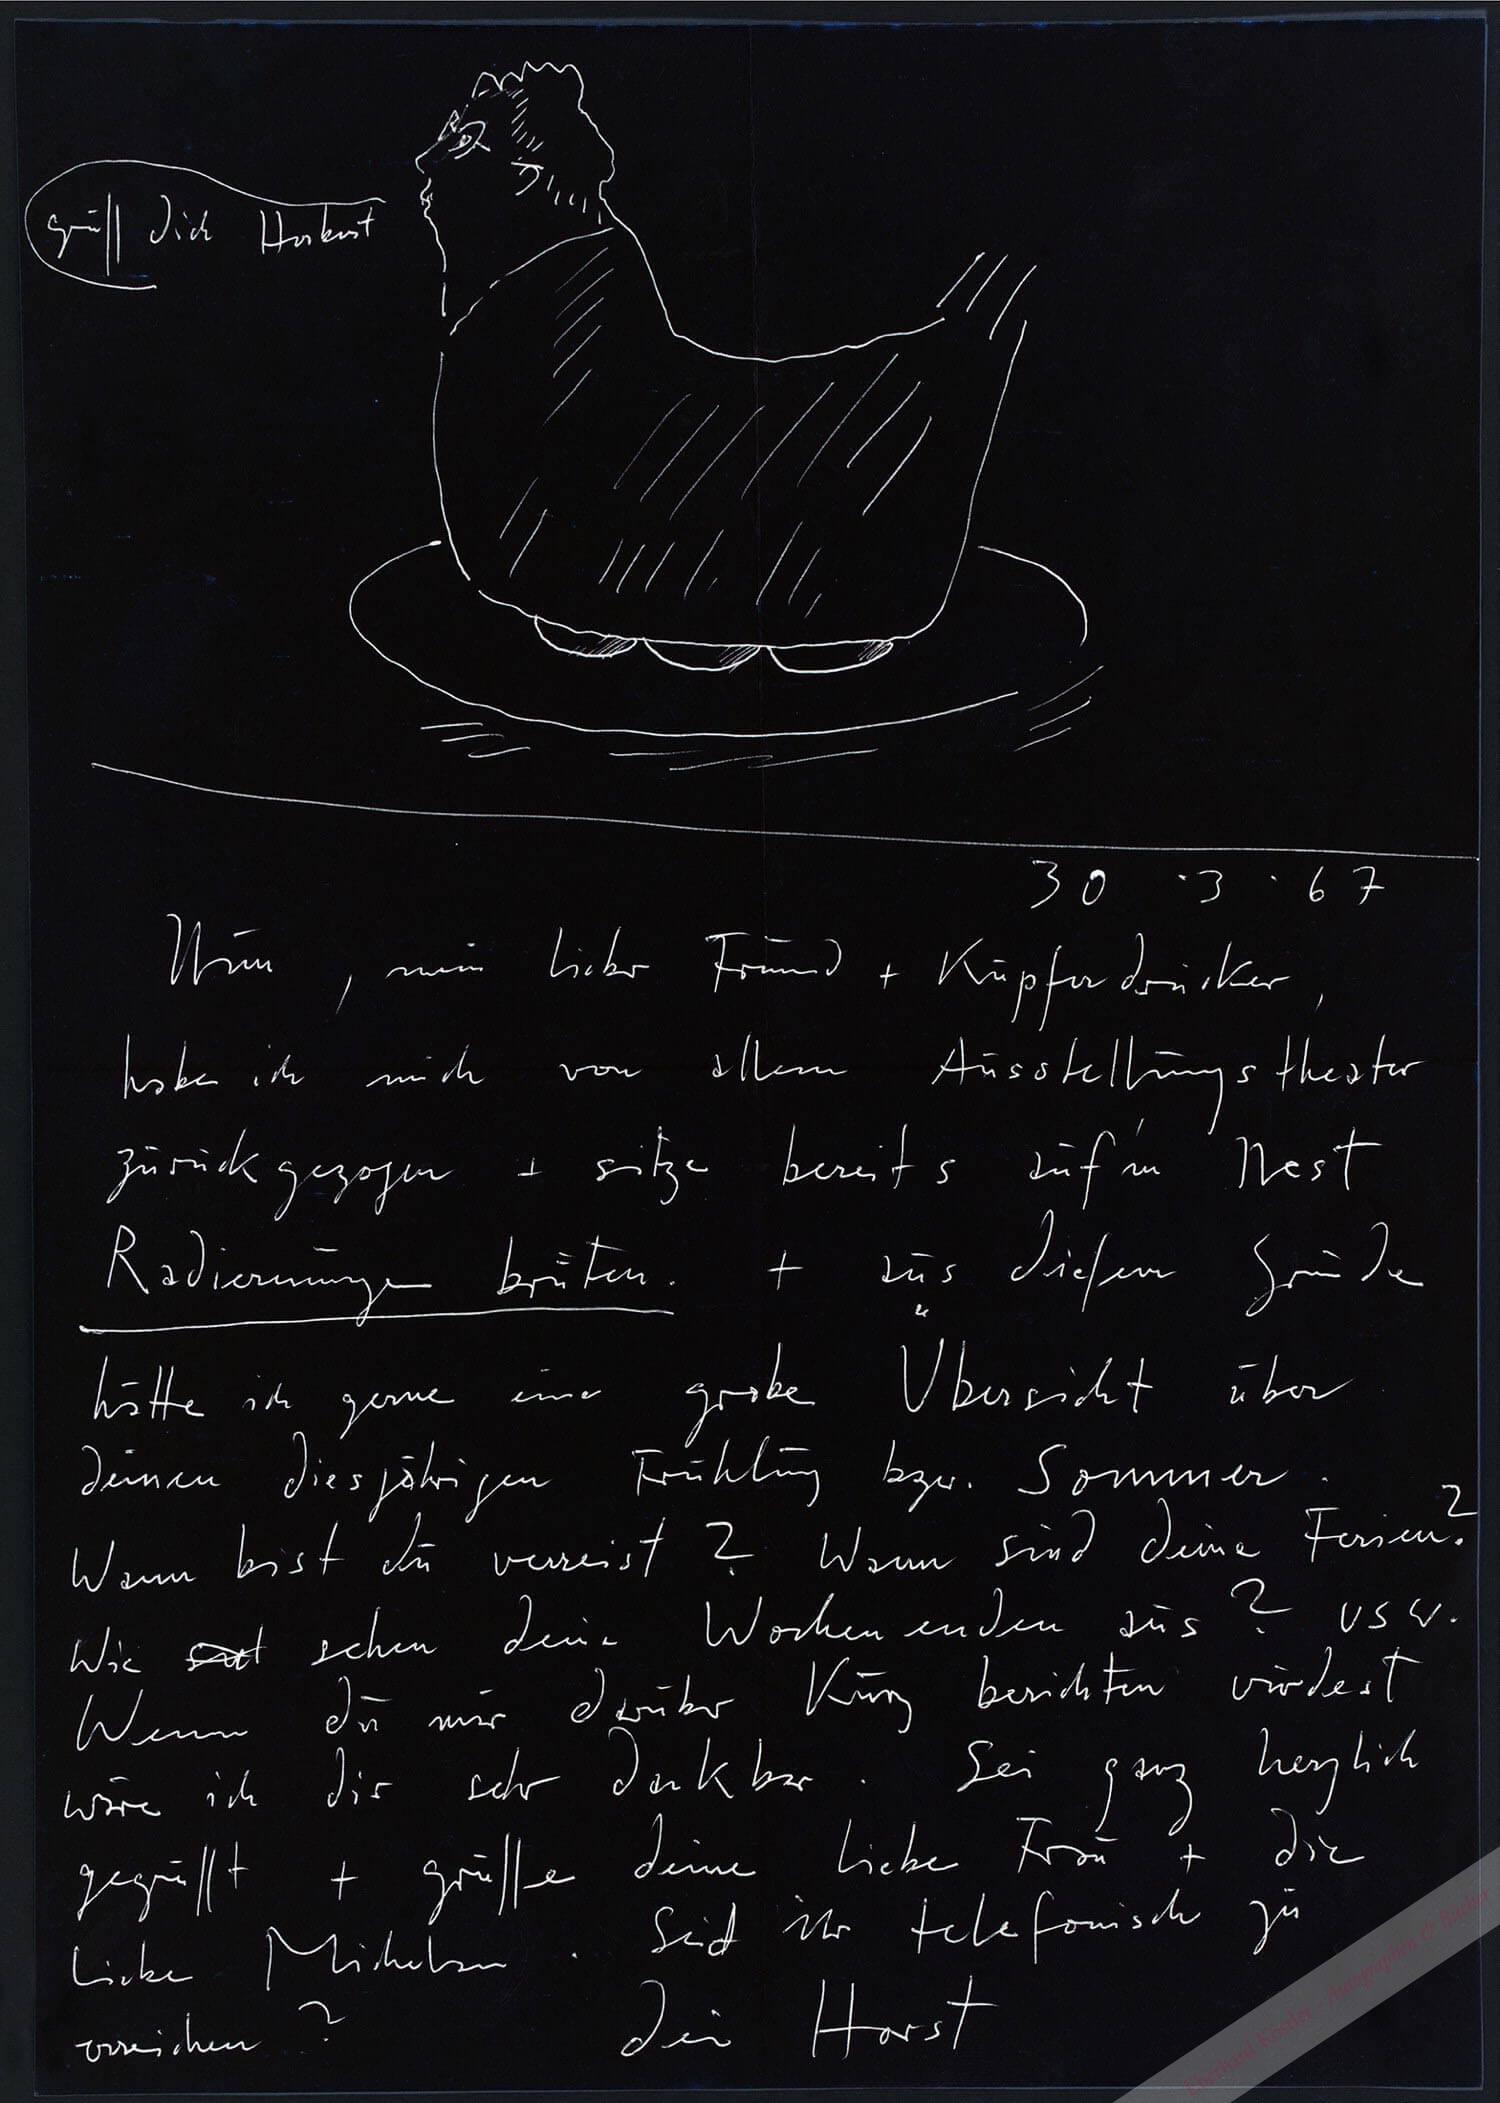 grüß dich Herbert
30 . 3 . 67
Nun, mein lieber Freund + Kupferdrucker,
habe ich mich von allem Ausstellungstheater
zurückgezogen + sitze bereits auf'm Nest
Radierungen brüten. + aus diesem Grunde
hätte ich gerne eine grobe Übersicht über
deinen diesjährigen Frühling bzw. Sommer.
Wann bist du verreist? Wann sind deine Ferien?
Wie sehen deine Wochenenden aus? usw.
Wenn du mir darüber kurz berichten würdest
wäre ich dir sehr dankbar. Sei ganz herzlich
gegrüßt + grüße deine liebe Frau + die
liebe Seid ihr telefonisch zu
erreichen? dein Horst
Eberhard Köstler · Autographen & Bücher